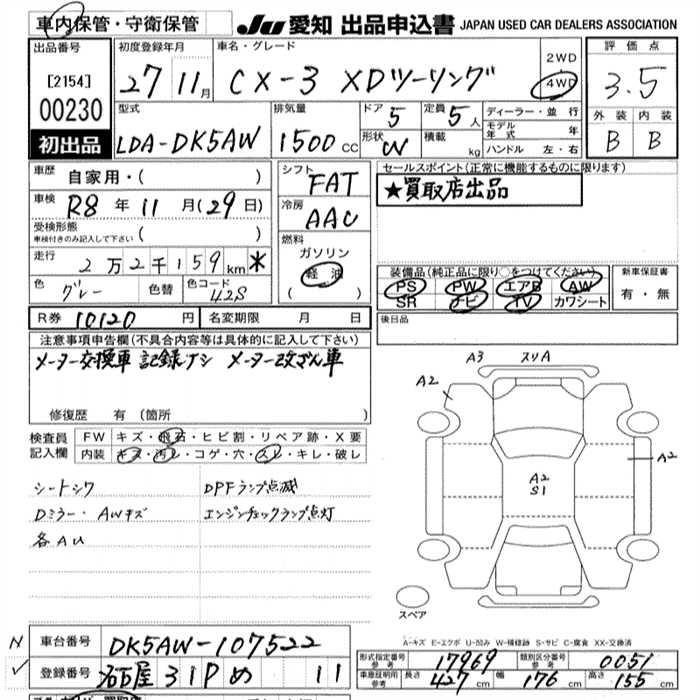 車内保管・守衛保管 JU 愛知 出品申込書 JAPAN USED CAR DEALERS ASSOCIATION
出品番号
[2154]
00230
初出品
初度登録年月
27 11月
車名・グレード
CX-3 XDツーリング
2WD
4WD
評価点
3.5
外装 内装
B B
型式
LDA-DK5AW
排気量
1500cc
ドア 5
形状 W
定員 5人
積載 kg
ディーラー・並行
モデル年式 年
ハンドル 左・右
車歴 自家用・( )
車検 R8年11月(29日)
受検形態
車検付きのみ記入して下さい ( )
走行 2万2千159km *
色 グレー 色替 色コード 42S
シフト FAT
冷房 AAC
燃料
ガソリン
軽油
( )
セールスポイント(正常に機能するものに限ります)
★買取店出品
装備品(純正品に限り○をつけてください)
PS PW エアB AW
SR ナビ TV カワシート
新車保証書
有・無
R券 10120円 名変期限 月 日
後日品
注意事項申告欄(不具合内容等は具体的に記入して下さい)
メーター交換車 記録ナシ メーター改ざん車
修復歴 有 (箇所
検査員記入欄
FW キズ・飛石・ヒビ割・リペア跡・X要
内装 キズ・汚レ・コゲ・穴・スレ・キレ・破レ
シートシワ DPFランプ点滅
Dミラー・AWキズ エンジンチェックランプ点灯
各AU
A3 スリA
A2
A2
A2
S1
スペア
A-キズ E-エクボ U-凹み W-補修跡 S-サビ C-腐食 XX-交換済
N 車台番号 DK5AW-107522
✓ 登録番号 名古屋 31P め 11
形式指定番号 参考 17969 類別区分番号 参考 0051
車庫証明用 参考 長さ 427cm 幅 176cm 高さ 155cm